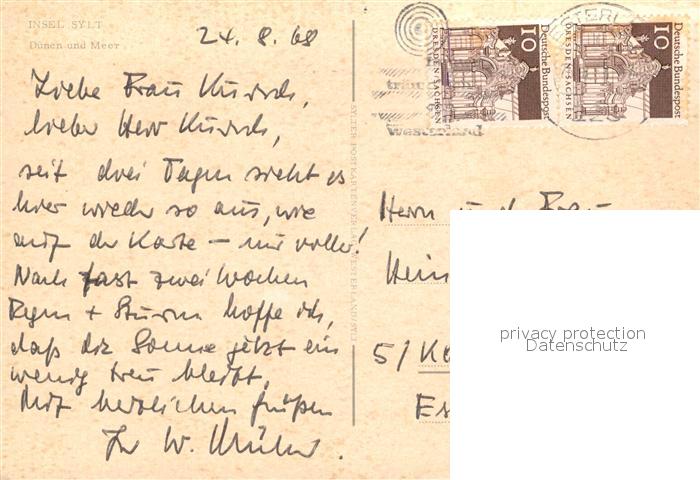 INSEL SYLT
Dünen und Meer
24. 8. 68
Liebe Frau
lieber Herr
seit drei Tagen sieht es
hier wieder so aus, wie
auf der Karte – nur voller!
Nach fast zwei Wochen
Regen + Sturm hoffe ich,
daß die Sonne jetzt ein
wenig treu bleibt.
Mit herzlichen Grüßen
Ihr W.
SYLTER POSTKARTENVERLAG WESTERLAND/SYLT
Deutsche Bundespost
10
DRESDEN/SACHSEN
Deutsche Bundespost
10
DRESDEN/SACHSEN
westerland
Herrn u. d. Frau
Hein
5/ Kö
privacy protection
Datenschutz